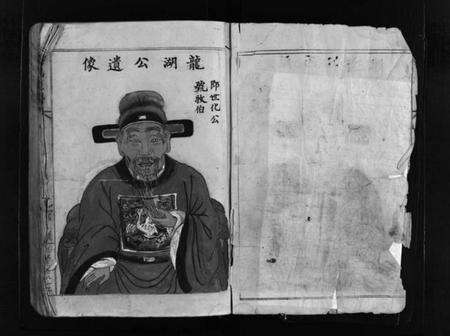 龍湖公遺像
即世化公
號敦伯